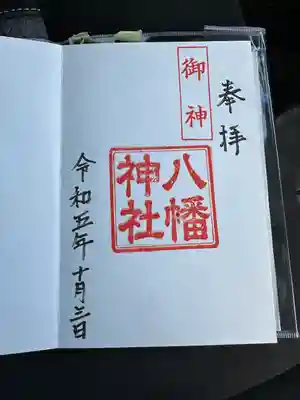 奉拝
御神
八幡
神社
令和五年十月三日